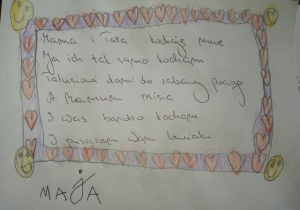 Mama i Tata kochają mnie
Ja ich tak samo kocham
Tatusiowi damy do zabawy
A Mamusi misia
I Was bardzo kocham
I Wam kwiatki
MAJA